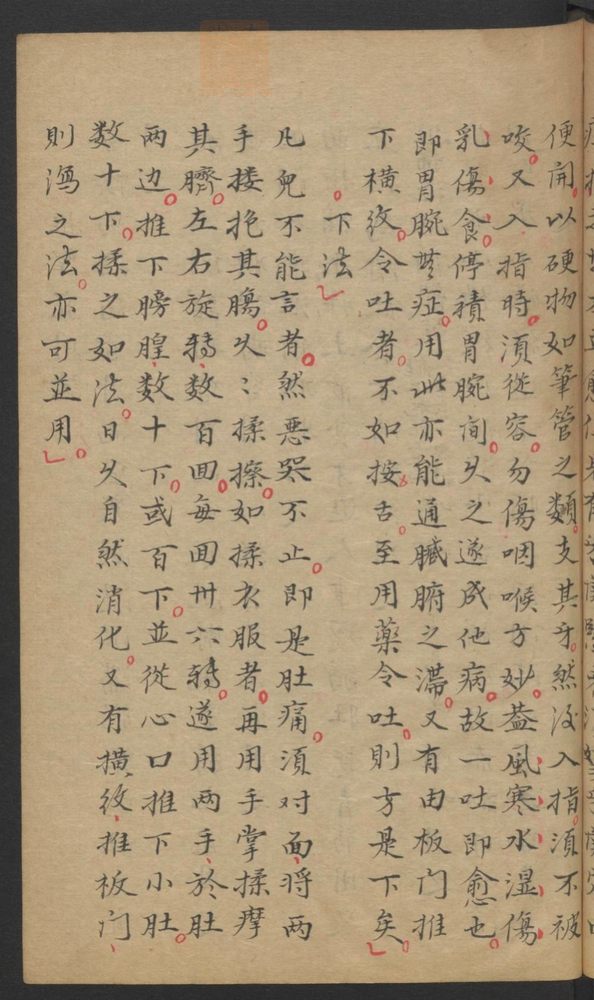 便開以硬物如筆管之類支其牙然後入指須不被
咬又入指時須從容勿傷咽喉方妙蓋風寒水湿傷
乳傷食停積胃腕間久之遂成他病故一吐即愈也
即胃腕無症用此亦能通臟腑之滯又有由板门推
下橫紋令吐者不如按舌至用藥令吐則方是下矣
下法
凡兒不能言者然悪哭不止即是肚痛須对面将两
手搂抱其腸久〻揉擦如揉衣服者再用手掌揉摩
其臍左右旋轉数百回每回卅六轉遂用两手於肚
两边推下膀胱数十下或百下並從心口推下小肚
数十下揉之如法日久自然消化又有橫紋推板门
則瀉之法亦可並用